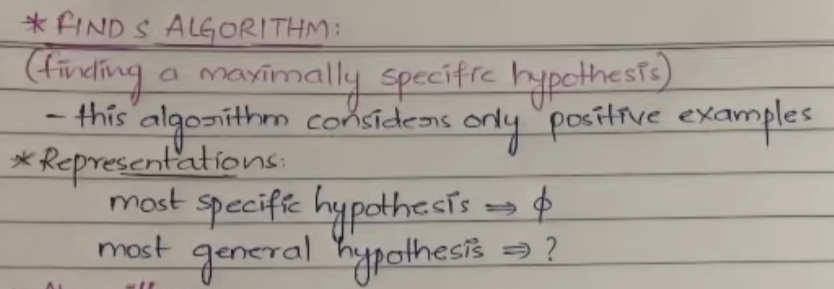 * FIND S ALGORITHM:
(finding a maximally specific hypothesis)
- this algorithm considers only positive examples
* Representations:
most specific hypothesis ⇒ ϕ
most general hypothesis ⇒ ?